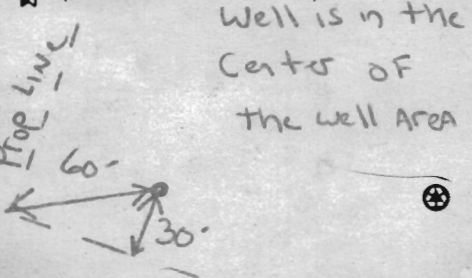 Well is in the
Center OF
the well Area
Prop LINE
60-
30-